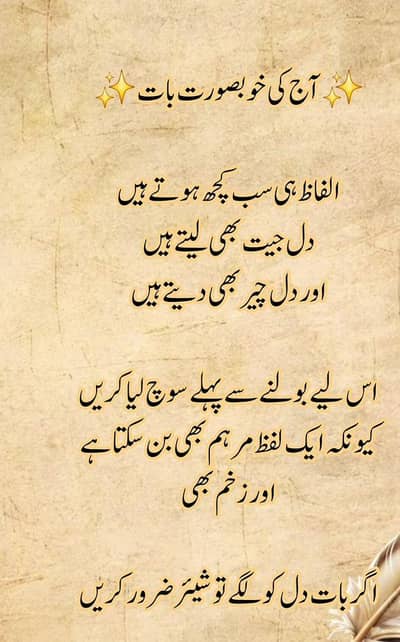 ✨ آج کی خوبصورت بات ✨
الفاظ ہی سب کچھ ہوتے ہیں
دل جیت بھی لیتے ہیں
اور دل چیر بھی دیتے ہیں
اس لیے بولنے سے پہلے سوچ لیا کریں
کیونکہ ایک لفظ مرہم بھی بن سکتا ہے
اور زخم بھی
اگر بات دل کو لگے تو شیئر ضرور کریں